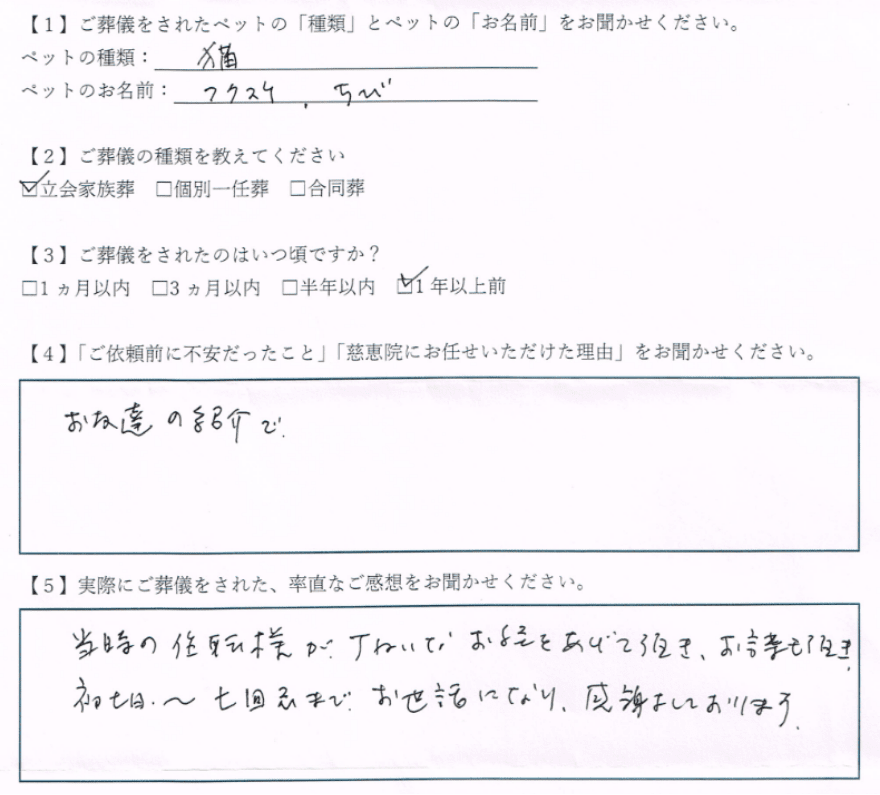 【1】ご葬儀をされたペットの「種類」とペットの「お名前」をお聞かせください。
ペットの種類：猫
ペットのお名前：フクスケ、ちび
【2】ご葬儀の種類を教えてください
☑立会家族葬 □個別一任葬 □合同葬
【3】ご葬儀をされたのはいつ頃ですか？
□1ヵ月以内 □3ヵ月以内 □半年以内 ☑1年以上前
【4】「ご依頼前に不安だったこと」「慈恵院にお任せいただけた理由」をお聞かせください。
お友達の紹介で.
【5】実際にご葬儀をされた、率直なご感想をお聞かせください。
当時の住職様がていねいなお経をあげて頂き、お言葉も頂き
初七日〜七回忌までお世話になり、感謝をしております.